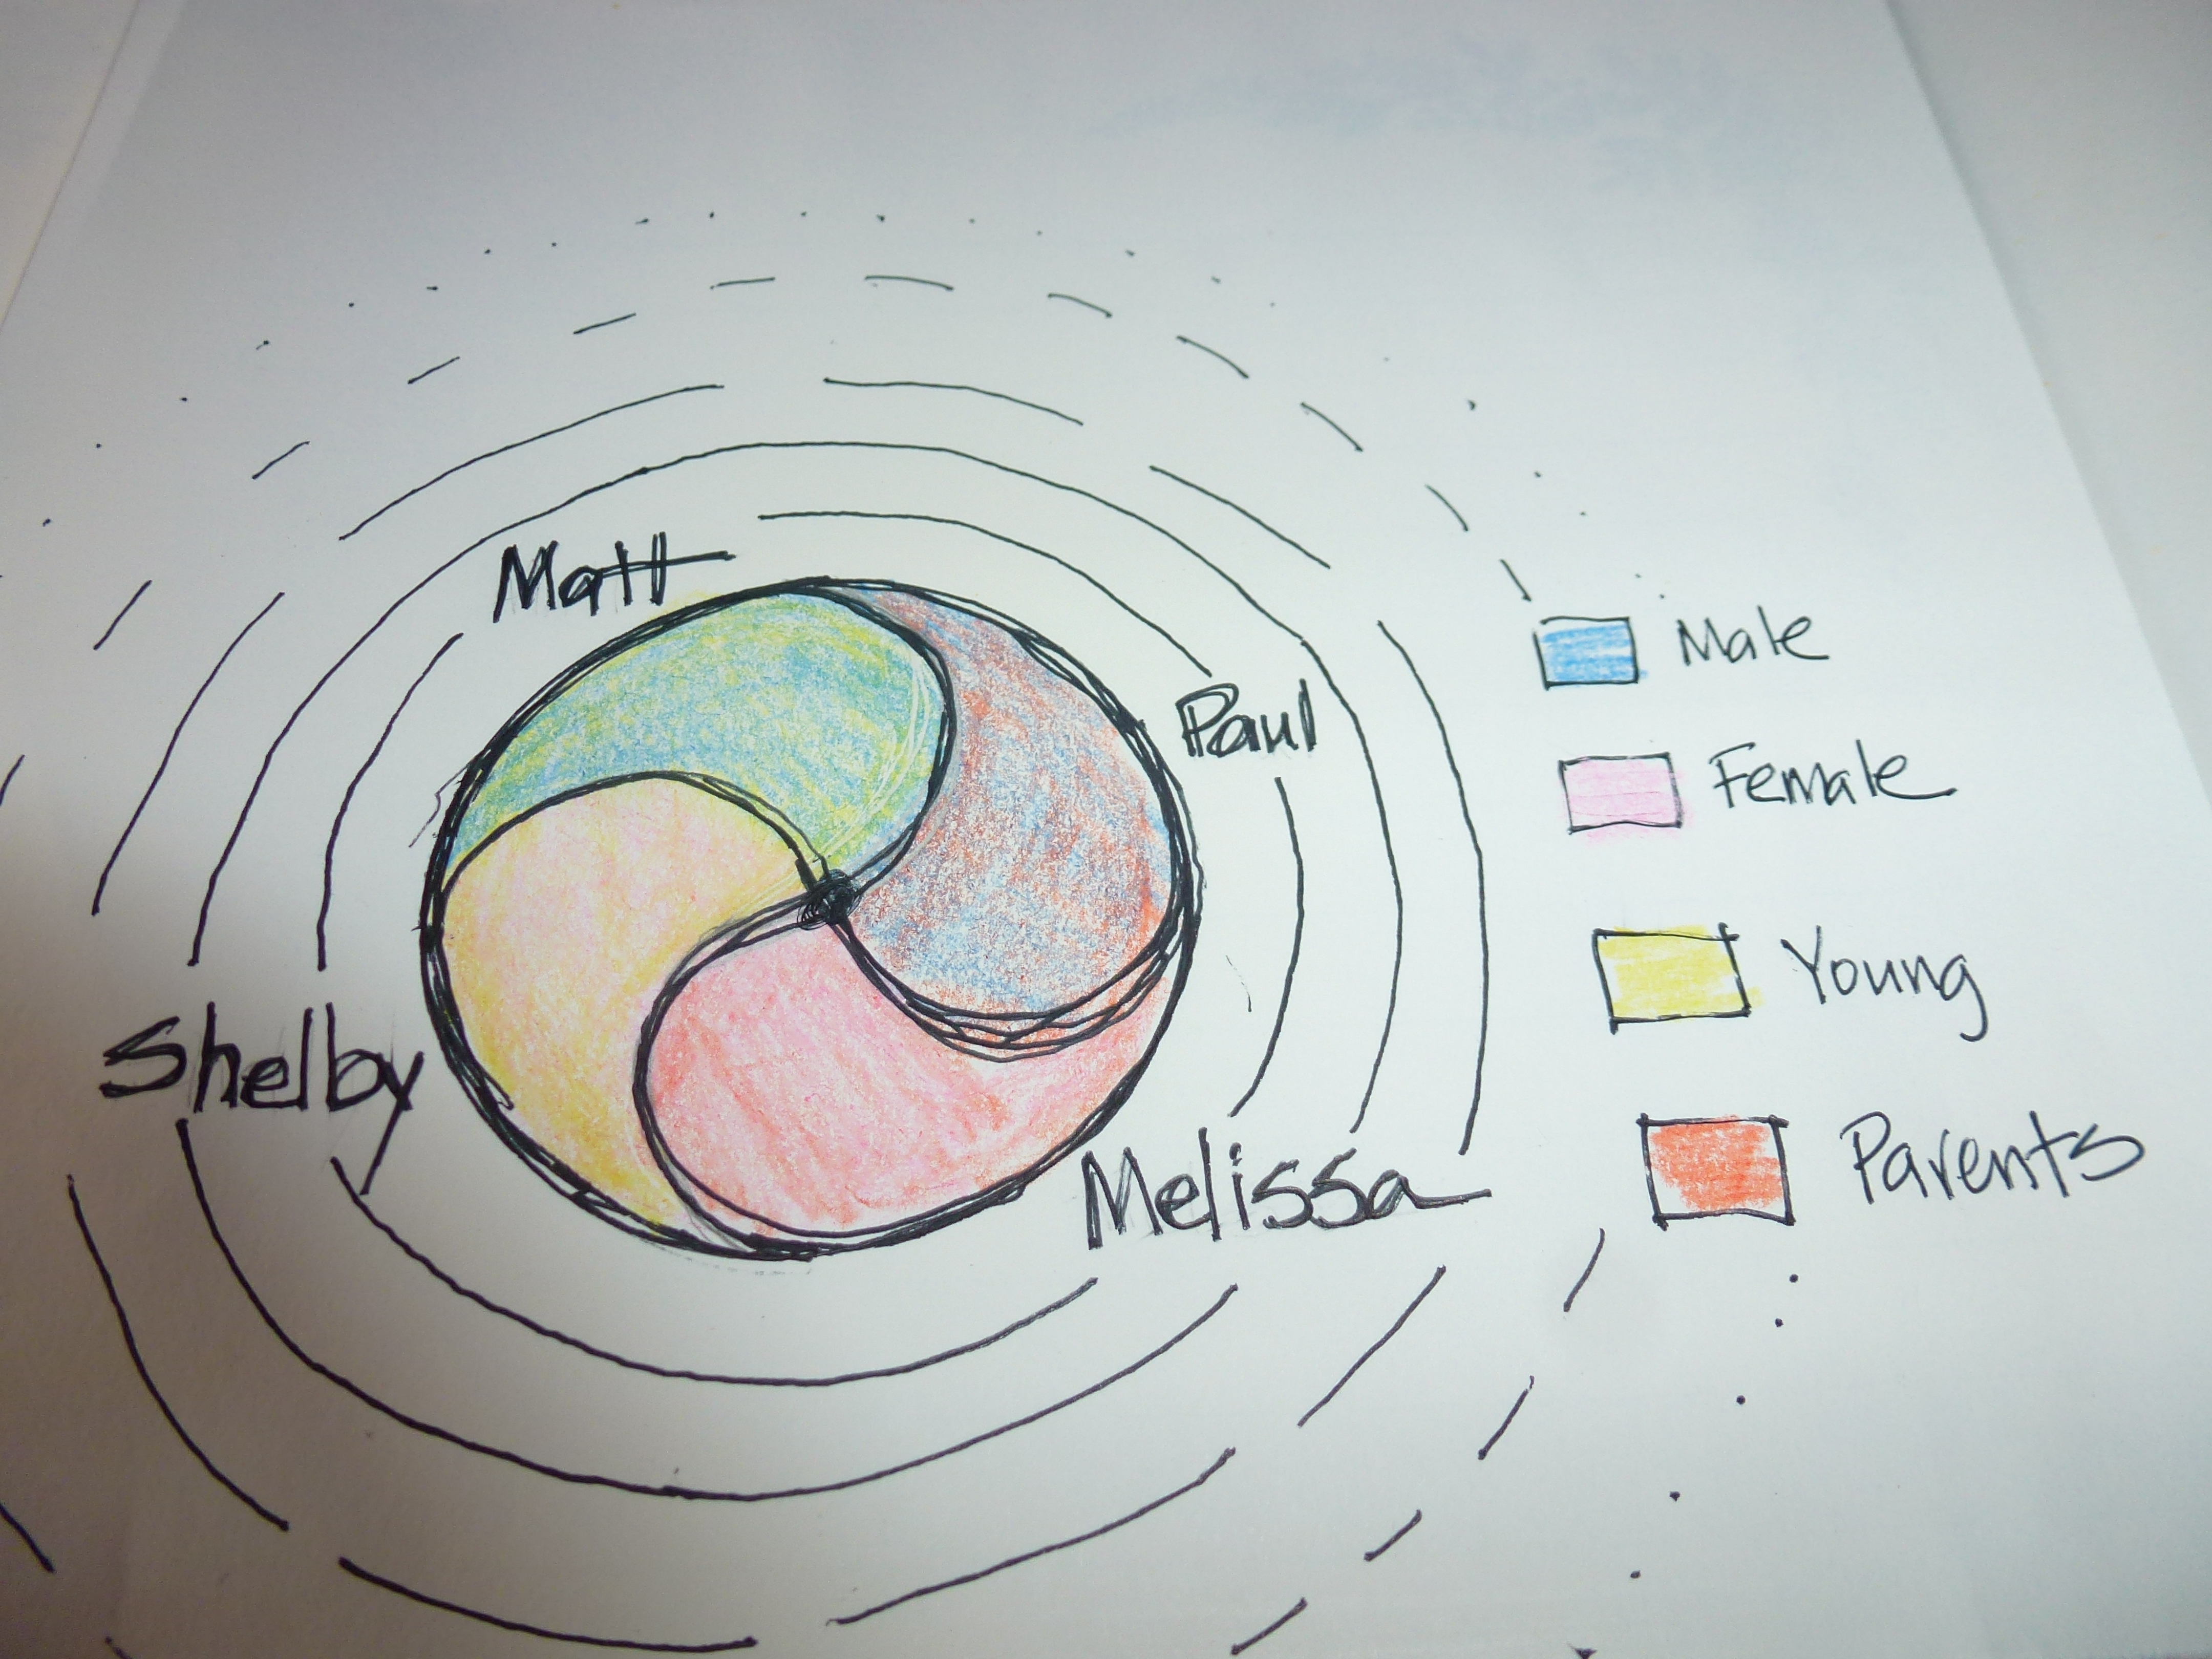 Matt
Paul
Shelby
Melissa
Male
Female
Young
Parents